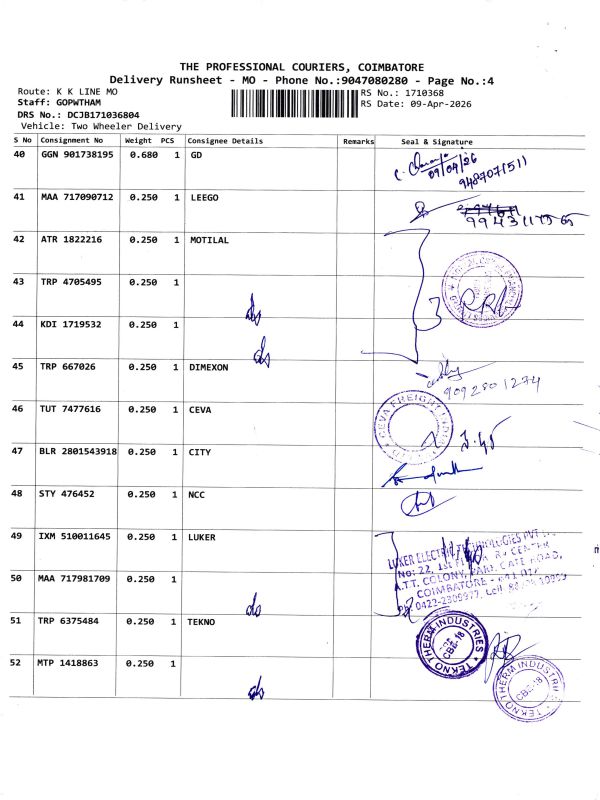 THE PROFESSIONAL COURIERS, COIMBATORE
Delivery Runsheet - MO - Phone No.:9047080280 - Page No.:4
Route: K K LINE MO
RS No.: 1710368
Staff: GOPWTHAM
RS Date: 09-Apr-2026
DRS No.: DCJB171036804
Vehicle: Two Wheeler Delivery
S No Consignment No Weight PCS Consignee Details Remarks Seal & Signature
40 GGN 901738195 0.680 1 GD
09/04/26
9487071511
41 MAA 717090712 0.250 1 LEEGO
42 ATR 1822216 0.250 1 MOTILAL
43 TRP 4705495 0.250 1
ds
44 KDI 1719532 0.250 1
ds
45 TRP 667026 0.250 1 DIMEXON
9092801274
46 TUT 7477616 0.250 1 CEVA
CEVA FREIGHT
47 BLR 2801543918 0.250 1 CITY
48 STY 476452 0.250 1 NCC
49 IXM 510011645 0.250 1 LUKER
LUKER ELECTRIC TECHNOLOGIES PVT
No: 22, 1st
A.T.T. COLONY,
COIMBATORE - 641 018
50 MAA 717981709 0.250 1
ds
Ph: 0422-2309977, Cell
51 TRP 6375484 0.250 1 TEKNO
TEKNO THERM INDUSTRIES
CBE-18
52 MTP 1418863 0.250 1
ds
TEKNO THERM INDUSTRIES
CBE-18